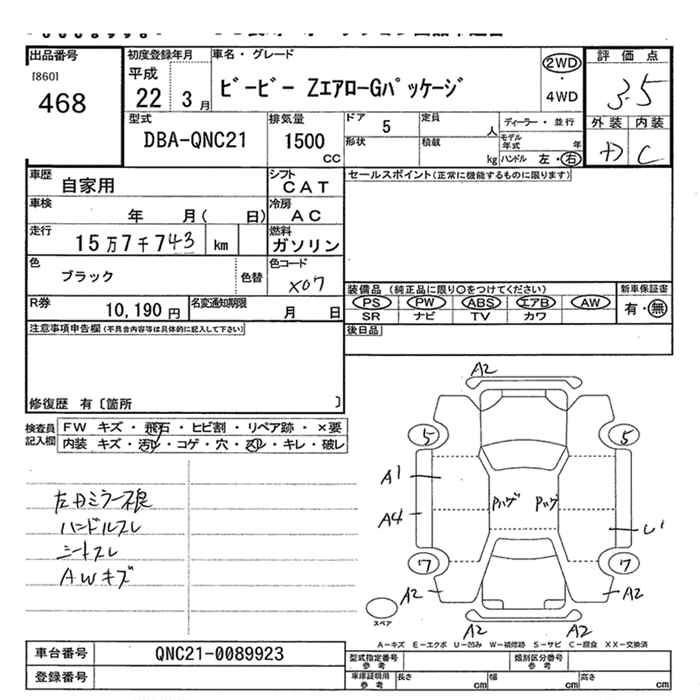 出品番号
[860]
468
初度登録年月
平成
22 3月
車名・グレード
ビービー ZエアローGパッケージ
2WD
・
4WD
評価点
3.5
外装 内装
C
型式
DBA-QNC21
排気量
1500
CC
ドア 5
形状
定員 人
積載 kg
ディーラー・並行
モデル年式 年
ハンドル 左・右
車歴 自家用
シフト CAT
車検 年 月( 日)
冷房 AC
走行 15万7千743 km
燃料 ガソリン
色 ブラック
色替
色コード X07
R券 10,190円
名変通知期限 月 日
セールスポイント(正常に機能するものに限ります)
装備品 (純正品に限り○をつけてください)
PS PW ABS エアB AW
SR ナビ TV カワ
新車保証書
有・無
後日品
注意事項申告欄(不具合内容等は具体的に記入して下さい)
修復歴 有〔箇所 〕
検査員記入欄
FW キズ・飛石・ヒビ割・リペア跡・×要
内装 キズ・汚レ・コゲ・穴・スレ・キレ・破レ
左ドミラー不良
ハンドルスレ
シートスレ
AWキズ
A2
5 5
A1
Pハゲ Pハゲ
A4
U1
7 7
A2 A2
A2 A2
スペア
A-キズ E-エクボ U-凹み W-補修跡 S-サビ C-腐食 XX-交換済
車台番号 QNC21-0089923
登録番号
型式指定番号 参考
類別区分番号 参考
車庫証明用 参考
長さ cm 幅 cm 高さ cm